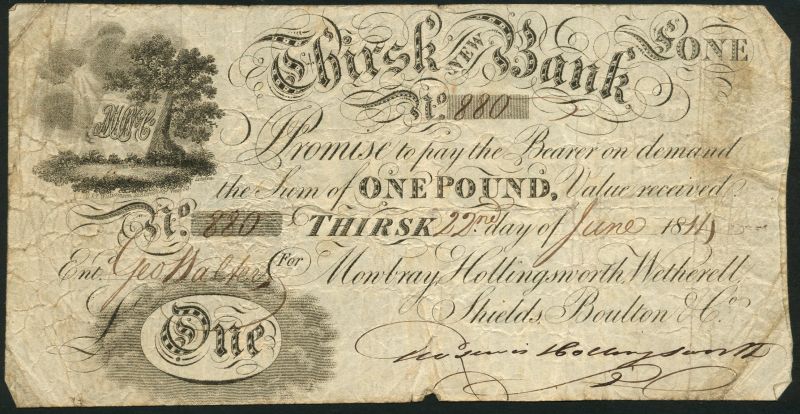 Thirsk NEW Bank £ ONE
No. 880
Promise to pay the Bearer on demand
the Sum of ONE POUND, Value received
No. 880 THIRSK 22nd day of June 1814
Ent.d Geo Walker For Mowbray, Hollingsworth, Wetherell
Shields, Boulton & Co.
£ One
Hollingsworth